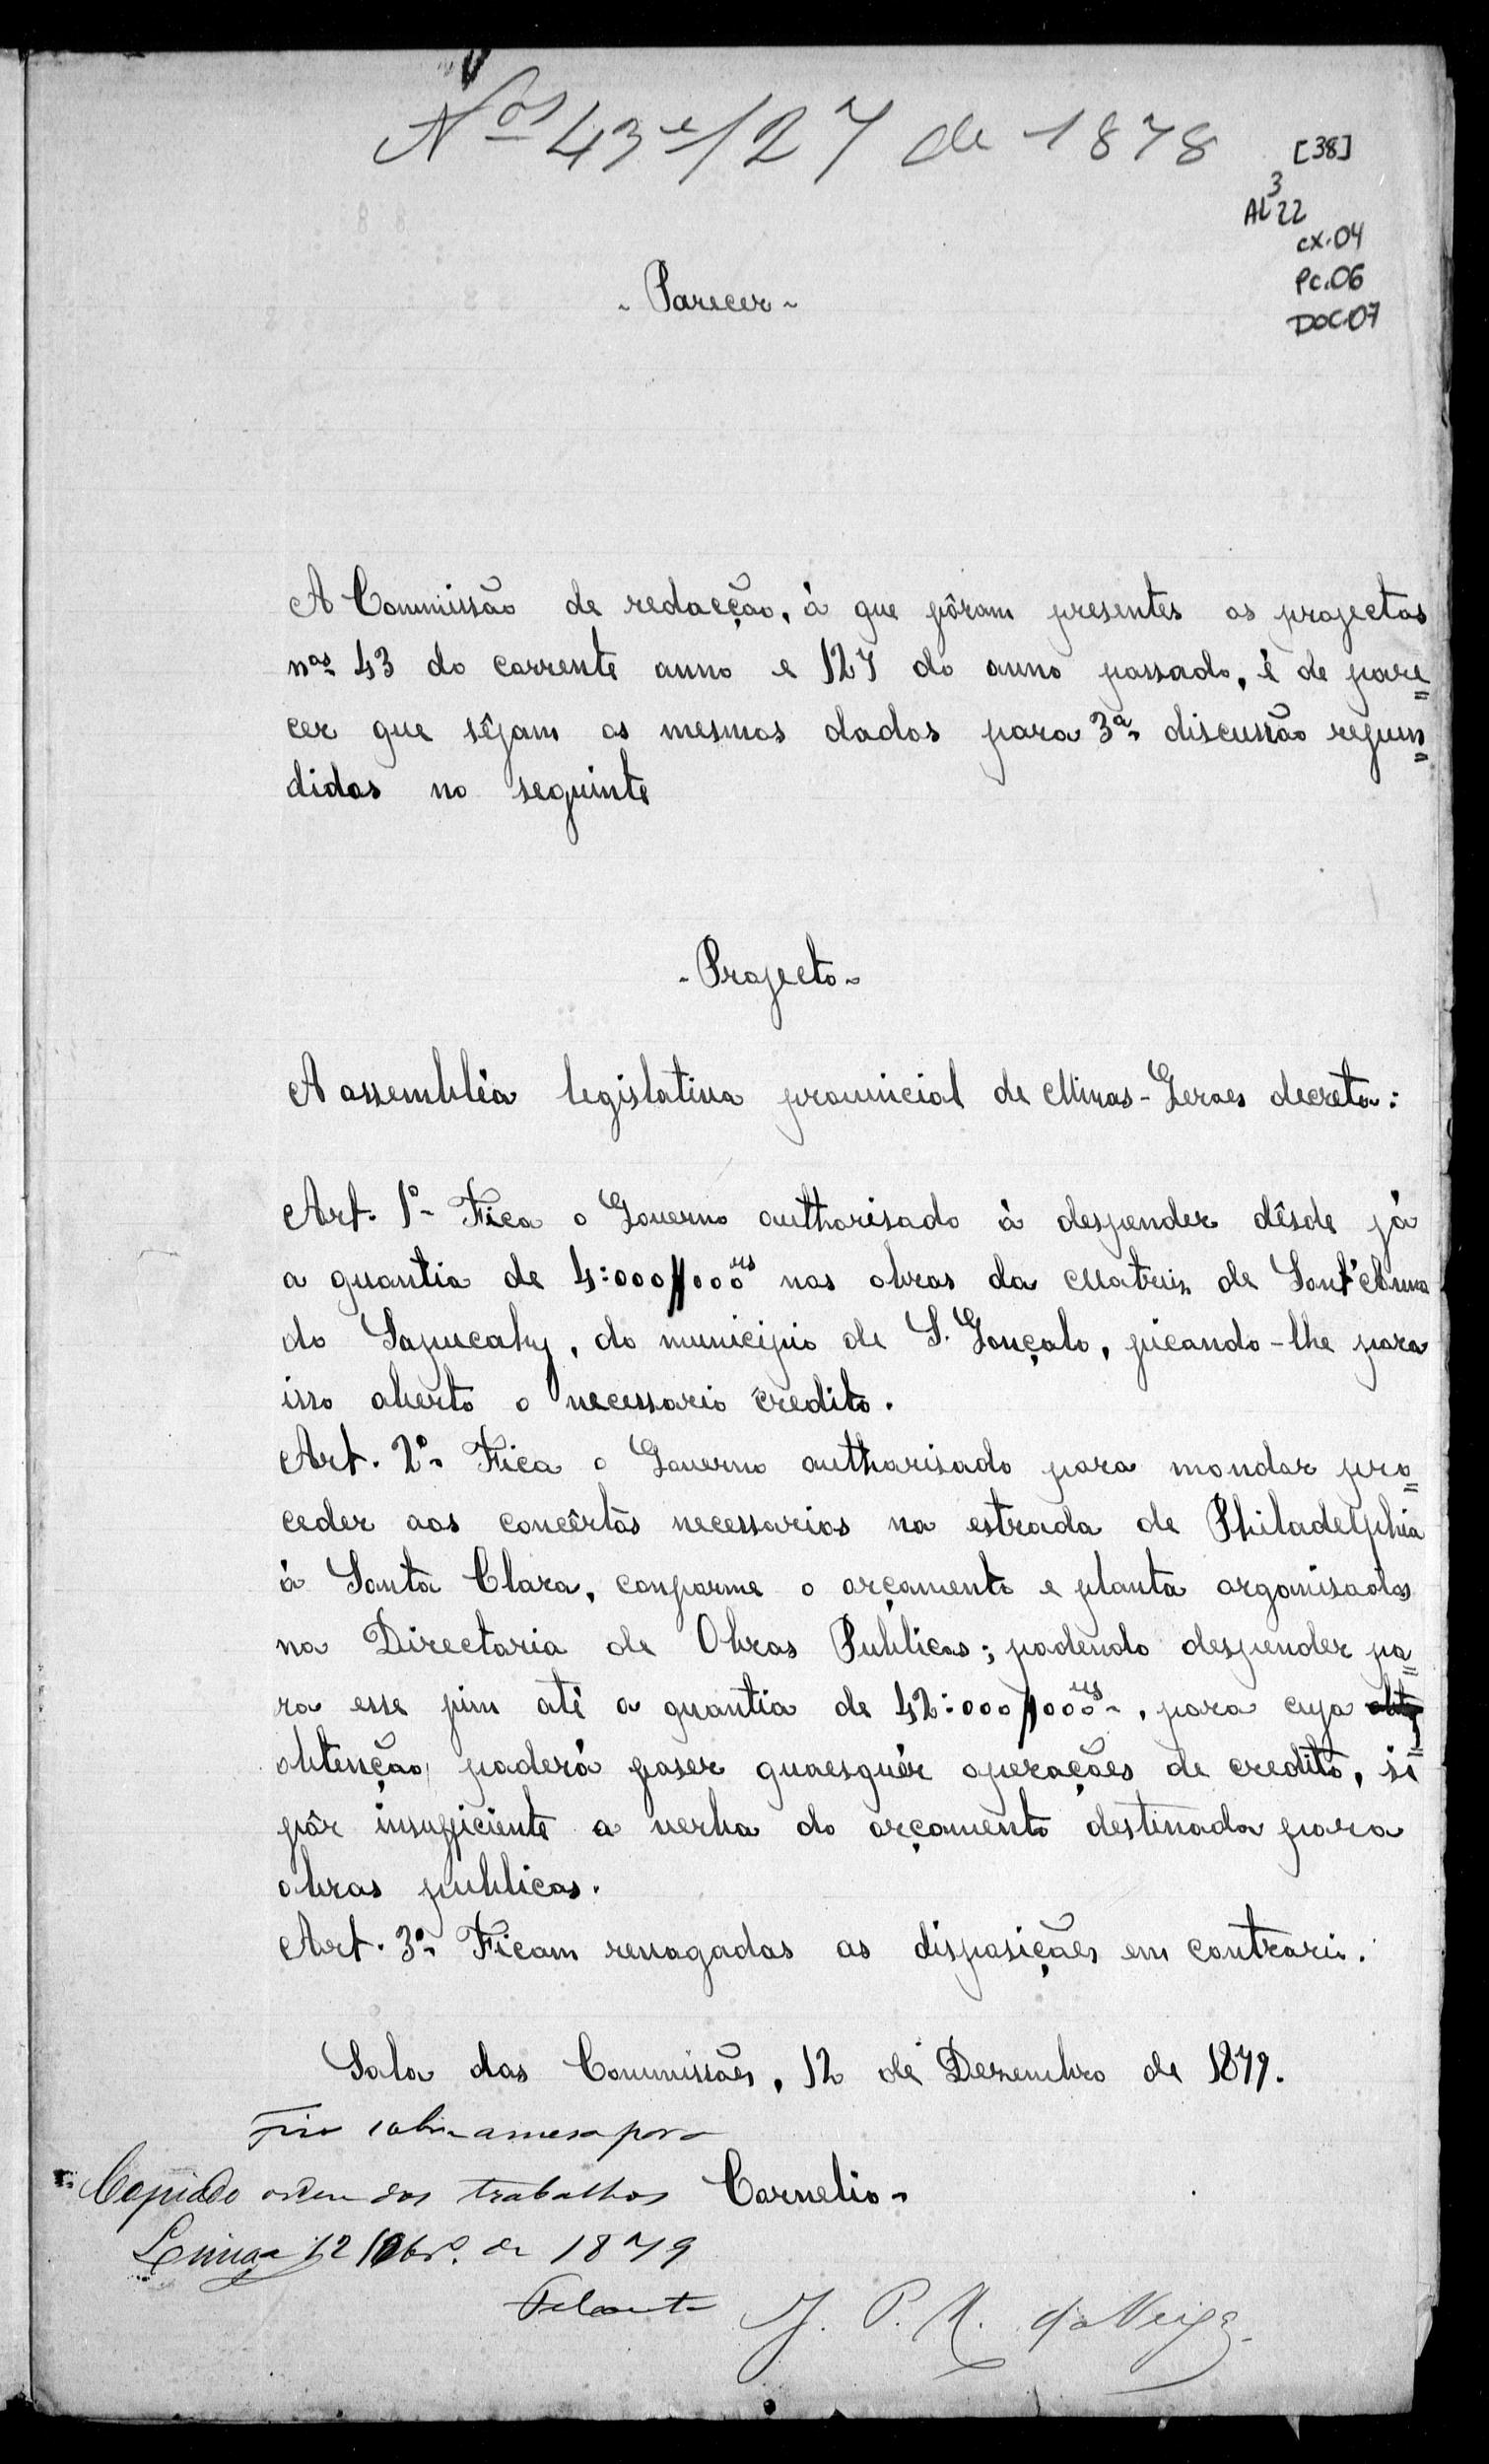 Nos 43 e 127 de 1878
[38]
3
AL 22
cx.04
Pc.06
DOC.07
- Parecer -
A Commissão de redacção, á que fôram presentes os projectos
nos 43 do corrente anno e 127 do anno passado, é de pare=
cer que sêjam os mesmos dados para 3a discussão refun=
didos no seguinte
- Projecto -
A assembléa legislativa provincial de Minas-Geraes decreta:
Art. 1o Fica o Governo authorisado á despender dêsde já
a quantia de 4:000$000rs nas obras da Matriz de Sant'Anna
do Sapucahy, do municipio de S. Gonçalo, ficando-lhe para
isso aberto o necessario credito.
Art. 2o Fica o Governo authorisado para mandar pro=
ceder aos concêrtos necessarios na estrada de Philadelphia
á Santa Clara, conforme o orçamento e planta organisados
na Directoria de Obras Publicas; podendo despender pa=
ra esse fim até a quantia de 42:000$000rs, para cuja
obtenção poderá faser quaesquér operações de credito, si
fôr insufficiente a verba do orçamento destinada para
obras publicas.
Art. 3o Ficam revogadas as disposições em contrario.
Sala das Commissões, 12 de Dezembro de 1879.
sobre a mesa para
Copiado ordem dos trabalhos Cornelio
12 Xbro. de 1879
J. P. X. da Veiga